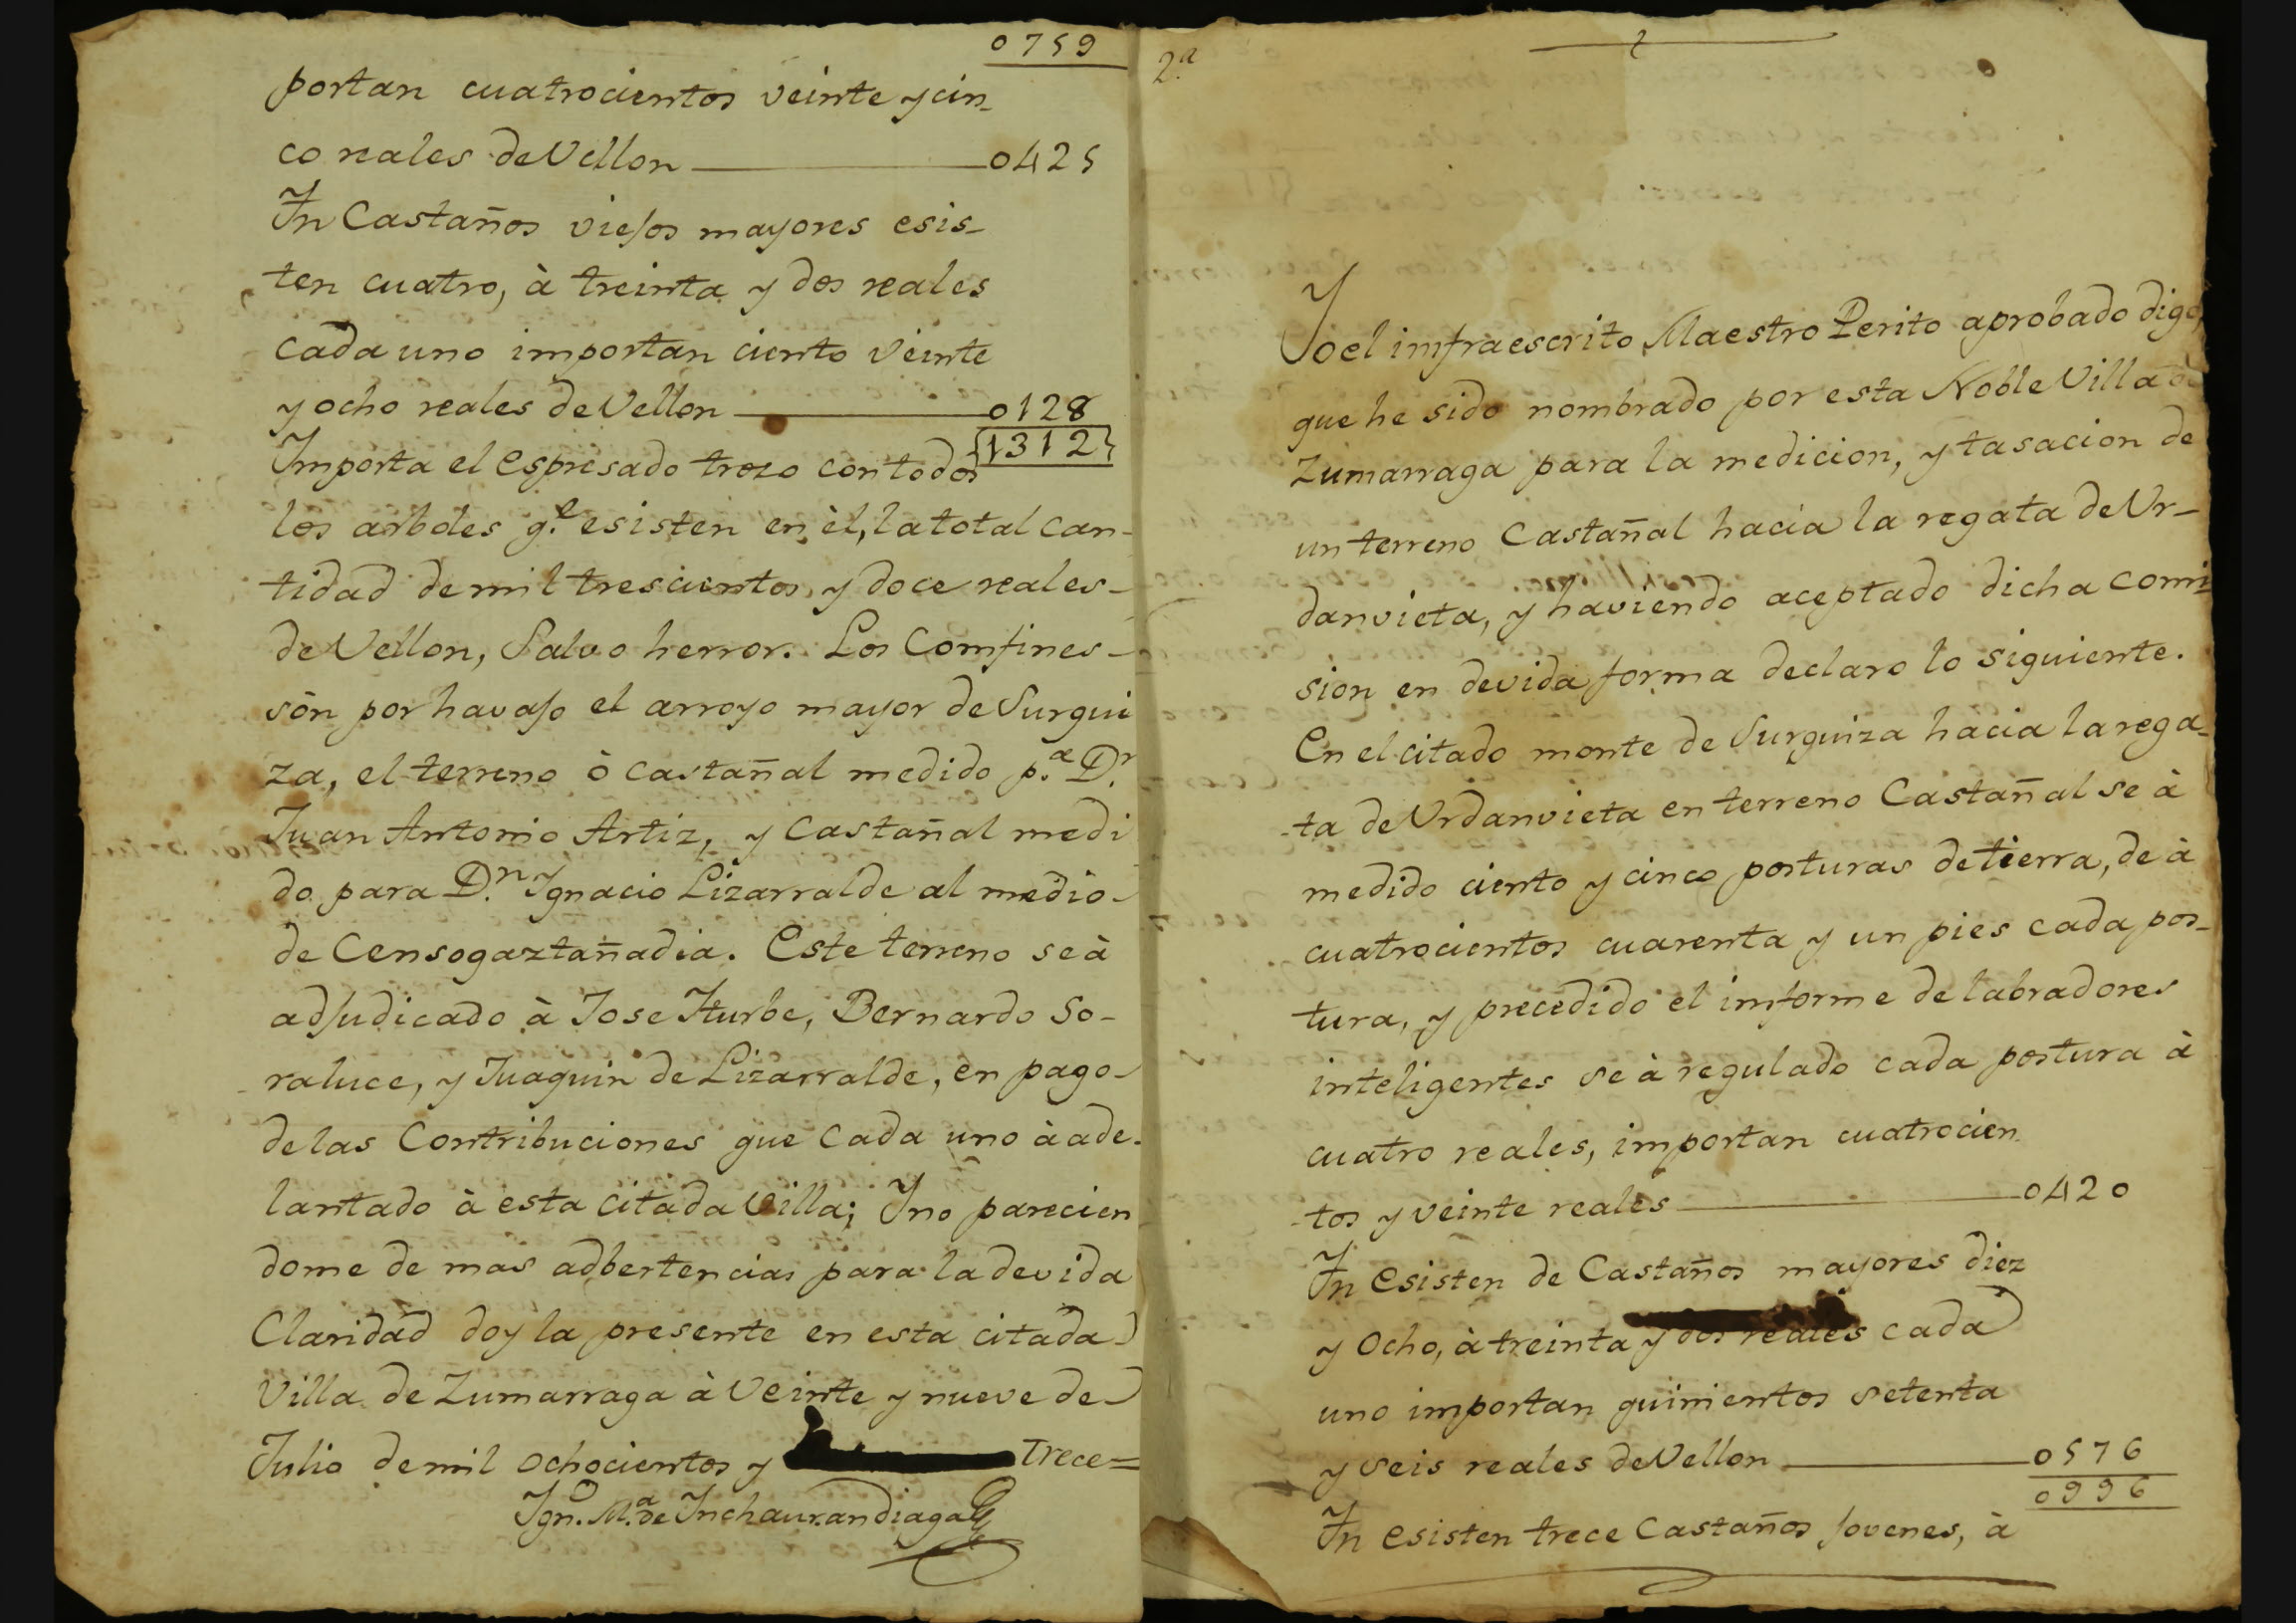 0759
portan cuatrocientos veinte y cin-
co reales de Vellon 0425
In Castaños viejos mayores esis-
ten cuatro, à treinta y dos reales
cada uno importan ciento veinte
y ocho reales de Vellon 0128
1312
Importa el espresado trozo con todos
los arboles q.e esisten en èl, la total can-
tidad de mil trescientos y doce reales
de Vellon, Salvo herror. Los Comfines
sòn por havajo el arroyo mayor de Surgui
za, el terreno ò castañal medido p.a D.n
Juan Antonio Artiz, y Castañal medi
do para D.n Ygnacio Lizarralde al medio
de Censogaztañadia. Este terreno se à
adjudicado à Jose Yturbe, Bernardo So-
raluce, y Juaquin de Lizarralde, en pago
de las Contribuciones que cada uno à ade-
lantado à esta citada Villa; Y no parecien
dome de mas adbertencias para la devida
Claridad doy la presente en esta citada
Villa de Zumarraga à Veinte y nueve de
Julio de mil ochocientos y Trece=
Ygn.o M.a de Ynchaurandiaga
2.a
2
Yo el imfraescrito Maestro Perito aprobado digo,
que he sido nombrado por esta Noble Villa de
Zumarraga para la medicion, y tasacion de
un terreno Castañal hacia la regata de Ur-
danvieta, y haviendo aceptado dicha comi
sion en devida forma declaro lo siguiente.
En el citado monte de Surguiza hacia la rega-
-ta de Urdanvieta en terreno Castañal se à
medido ciento y cinco posturas de tierra, de à
cuatrocientos cuarenta y un pies cada pos-
tura, y precedido el imforme de labradores
inteligentes se à regulado cada postura à
cuatro reales, importan cuatrocien
-tos y veinte reales 0420
In esisten de Castaños mayores diez
y Ocho, à treinta y dos reales cada
uno importan quinientos setenta
y seis reales de Vellon 0576
0996
In esisten trece Castaños Jovenes, à